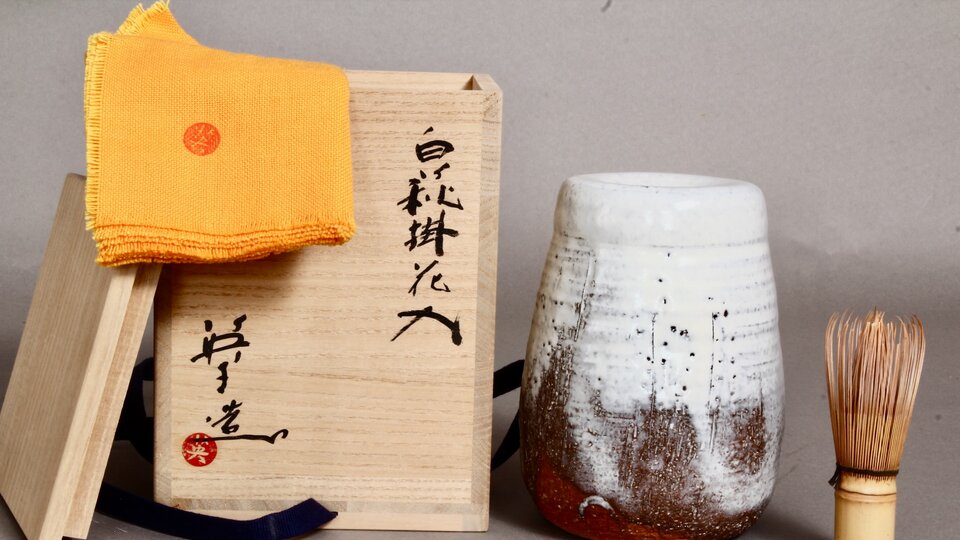 白萩掛花入
英子造
英